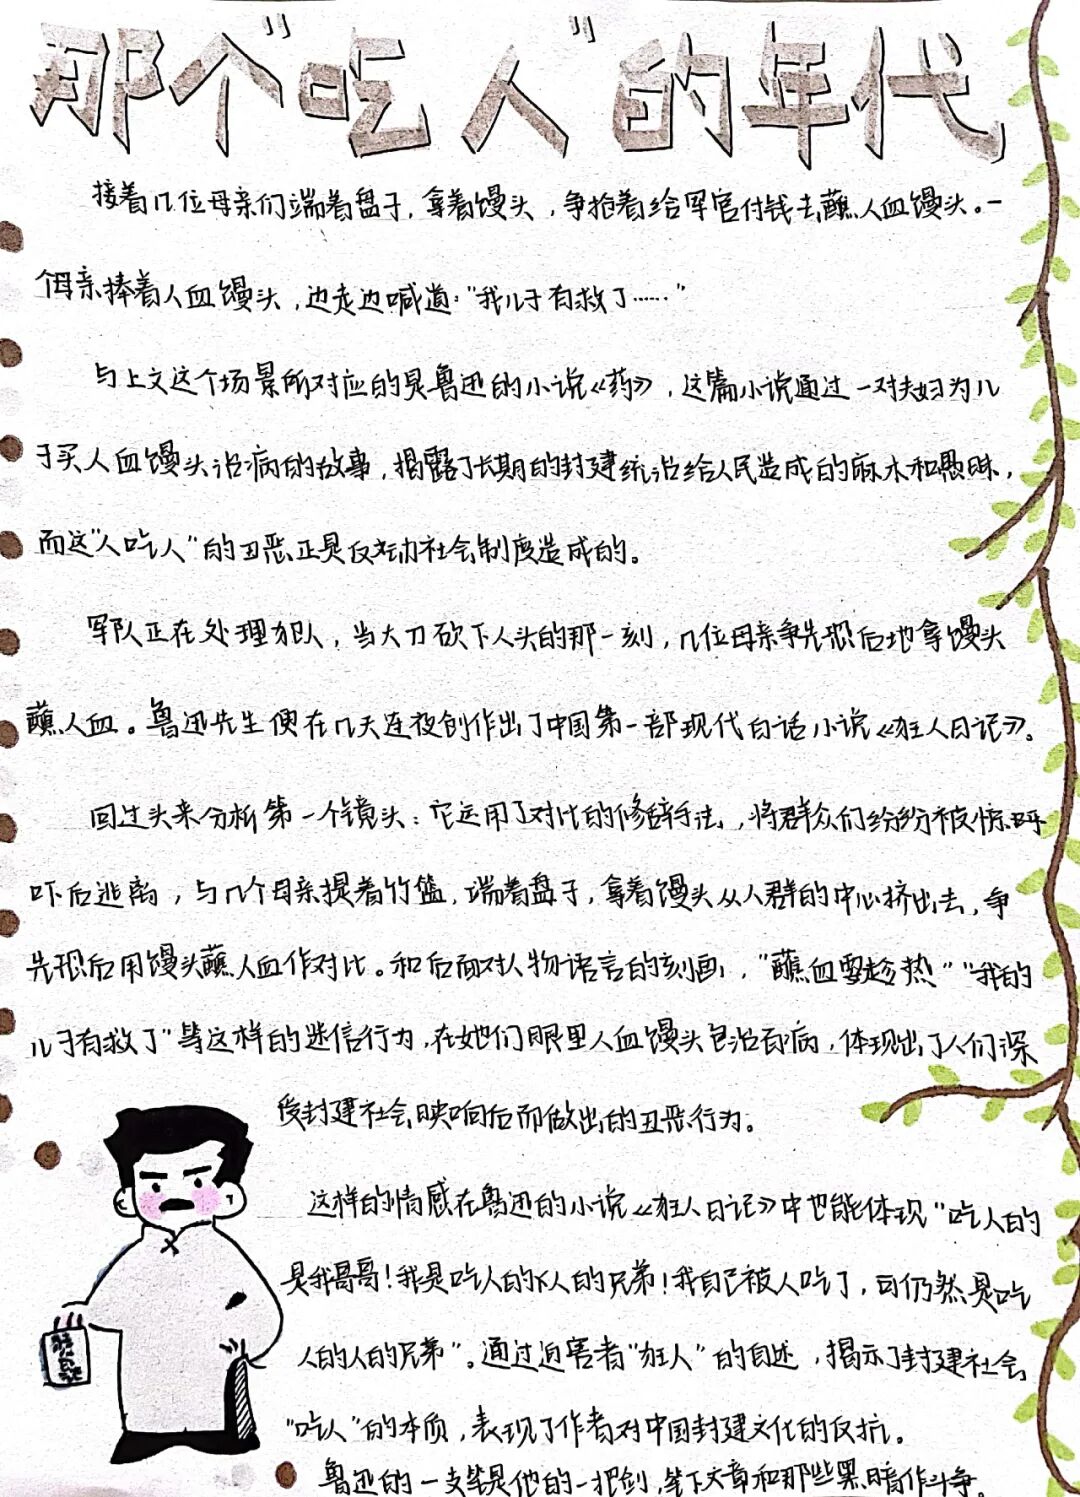 那个"吃人"的年代
接着几位母亲们端着盘子,拿着馒头,争抢着给军官付钱去蘸人血馒头。一
个母亲捧着人血馒头,边走边喊道:"我儿子有救了……"
与上文这个场景所对应的是鲁迅的小说《药》,这篇小说通过一对夫妇为儿
子买人血馒头治病的故事,揭露了长期的封建统治给人民造成的麻木和愚昧,
而这"人吃人"的丑恶正是反动社会制度造成的。
军队正在处理犯人,当大刀砍下人头的那一刻,几位母亲争先恐后地拿馒头
蘸人血。鲁迅先生便在几天连夜创作出了中国第一部现代白话小说《狂人日记》。
回过头来分析第一个镜头:它运用了对比的修辞手法,将群众们纷纷被惊呼
吓后逃离,与几个母亲提着竹篮,端着盘子,拿着馒头从人群的中心挤出去,争
先恐后用馒头蘸人血作对比。和后面对人物语言的刻画,"蘸血要趁热""我的
儿子有救了"等这样的迷信行为,在她们眼里人血馒头包治百病,体现出了人们深
受封建社会映响后而做出的丑恶行为。
这样的情感在鲁迅的小说《狂人日记》中也能体现"吃人的
是我哥哥!我是吃人的人的兄弟!我自己被人吃了,可仍然是吃
人的人的兄弟"。通过迫害者"狂人"的自述,揭示了封建社会
"吃人"的本质,表现了作者对中国封建文化的反抗。
鲁迅的一支笔是他的一把剑,笔下文章和那些黑暗作斗争。